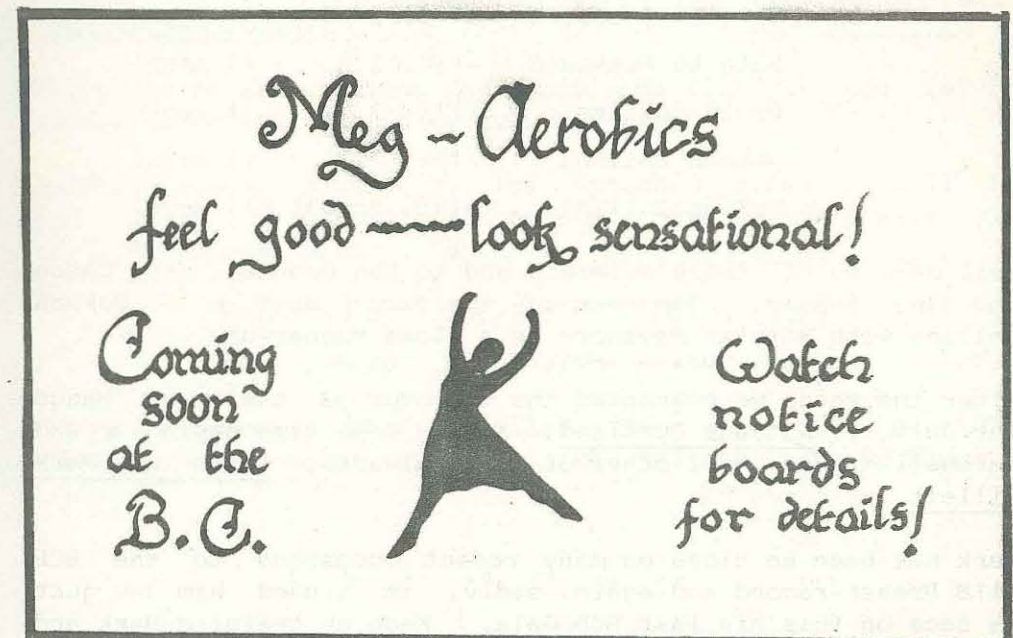 Meg~Aerobics
feel good~~look sensational!
Coming
soon
at the
B.C.
Watch
notice
boards
for details!